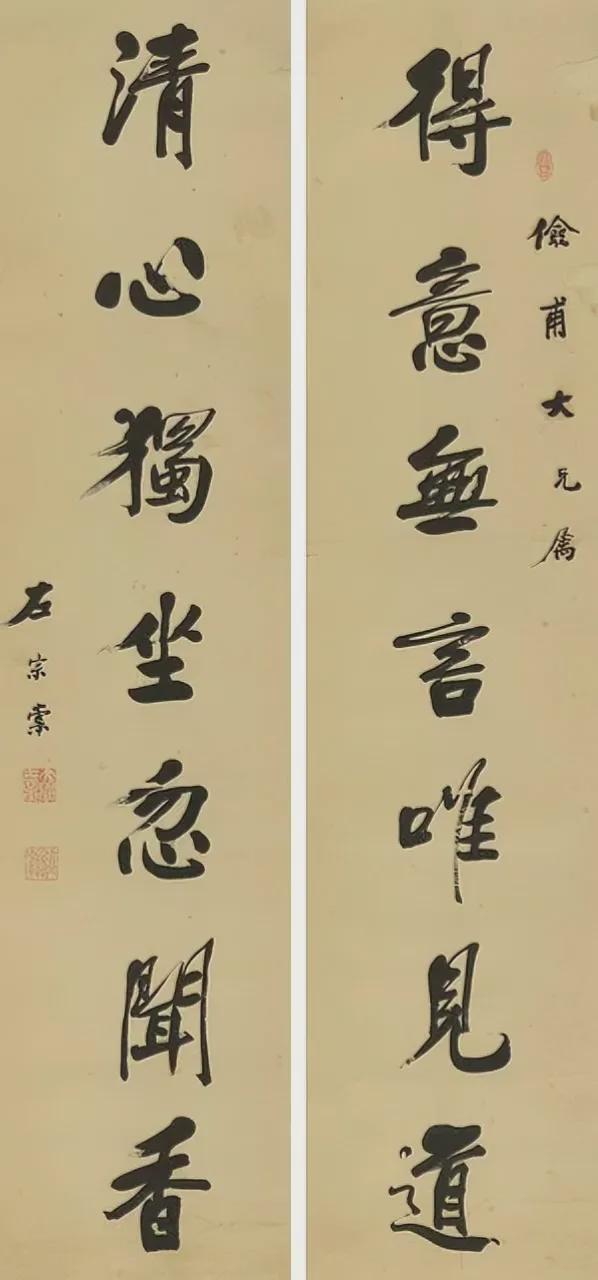 儉甫大兄屬
得意無言唯見道
清心獨坐忽聞香
左宗棠